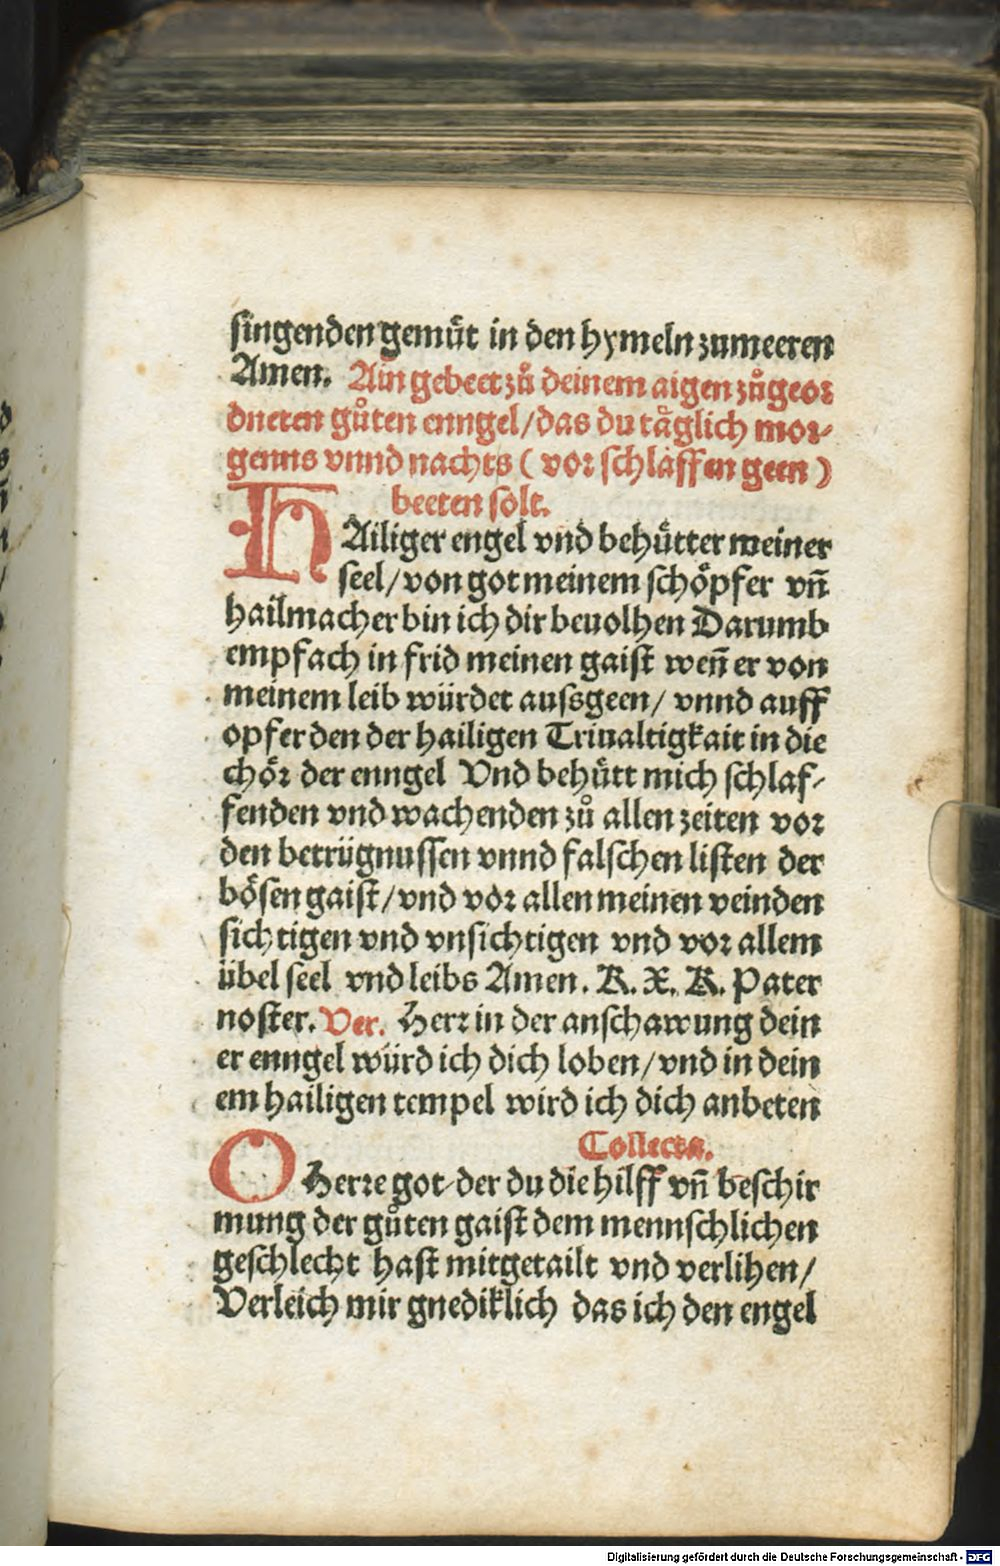 singenden gemuͤt in den hymeln zumeeren
Amen. Ain gebeet zuͦ deinem aigen zuͦgeor
dneten guͦten enngel/das du taͤglich mor-
genns vnnd nachts ( vor schlaffen geen )
beeten solt.
HAiliger engel vnd behuͤtter meiner
seel/von got meinem schoͤpfer vn̄
hailmacher bin ich dir beuolhen Darumb
empfach in frid meinen gaist wen̄ er von
meinem leib würdet aussgeen/ vnnd auff
opfer den der hailigen Triualtigkait in die
choͤr der enngel Vnd behuͤtt mich schlaf-
fenden vnd wachenden zuͦ allen zeiten vor
den betrügnussen vnnd falschen listen der
boͤsen gaist/vnd vor allen meinen veinden
sichtigen vnd vnsichtigen vnd vor allem
übel seel vnd leibs Amen. K. X. K. Pater
noster. Ver. Herr in der anschawung dein
er enngel würd ich dich loben/vnd in dein
em hailigen tempel wird ich dich anbeten
Collecta.
O Herre got der du die hilff vn̄ beschir
mung der guͦten gaist dem mennschlichen
geschlecht hast mitgetailt vnd verlihen/
Verleich mir gnediklich das ich den engel
Digitalisierung gefördert durch die Deutsche Forschungsgemeinschaft - DFG